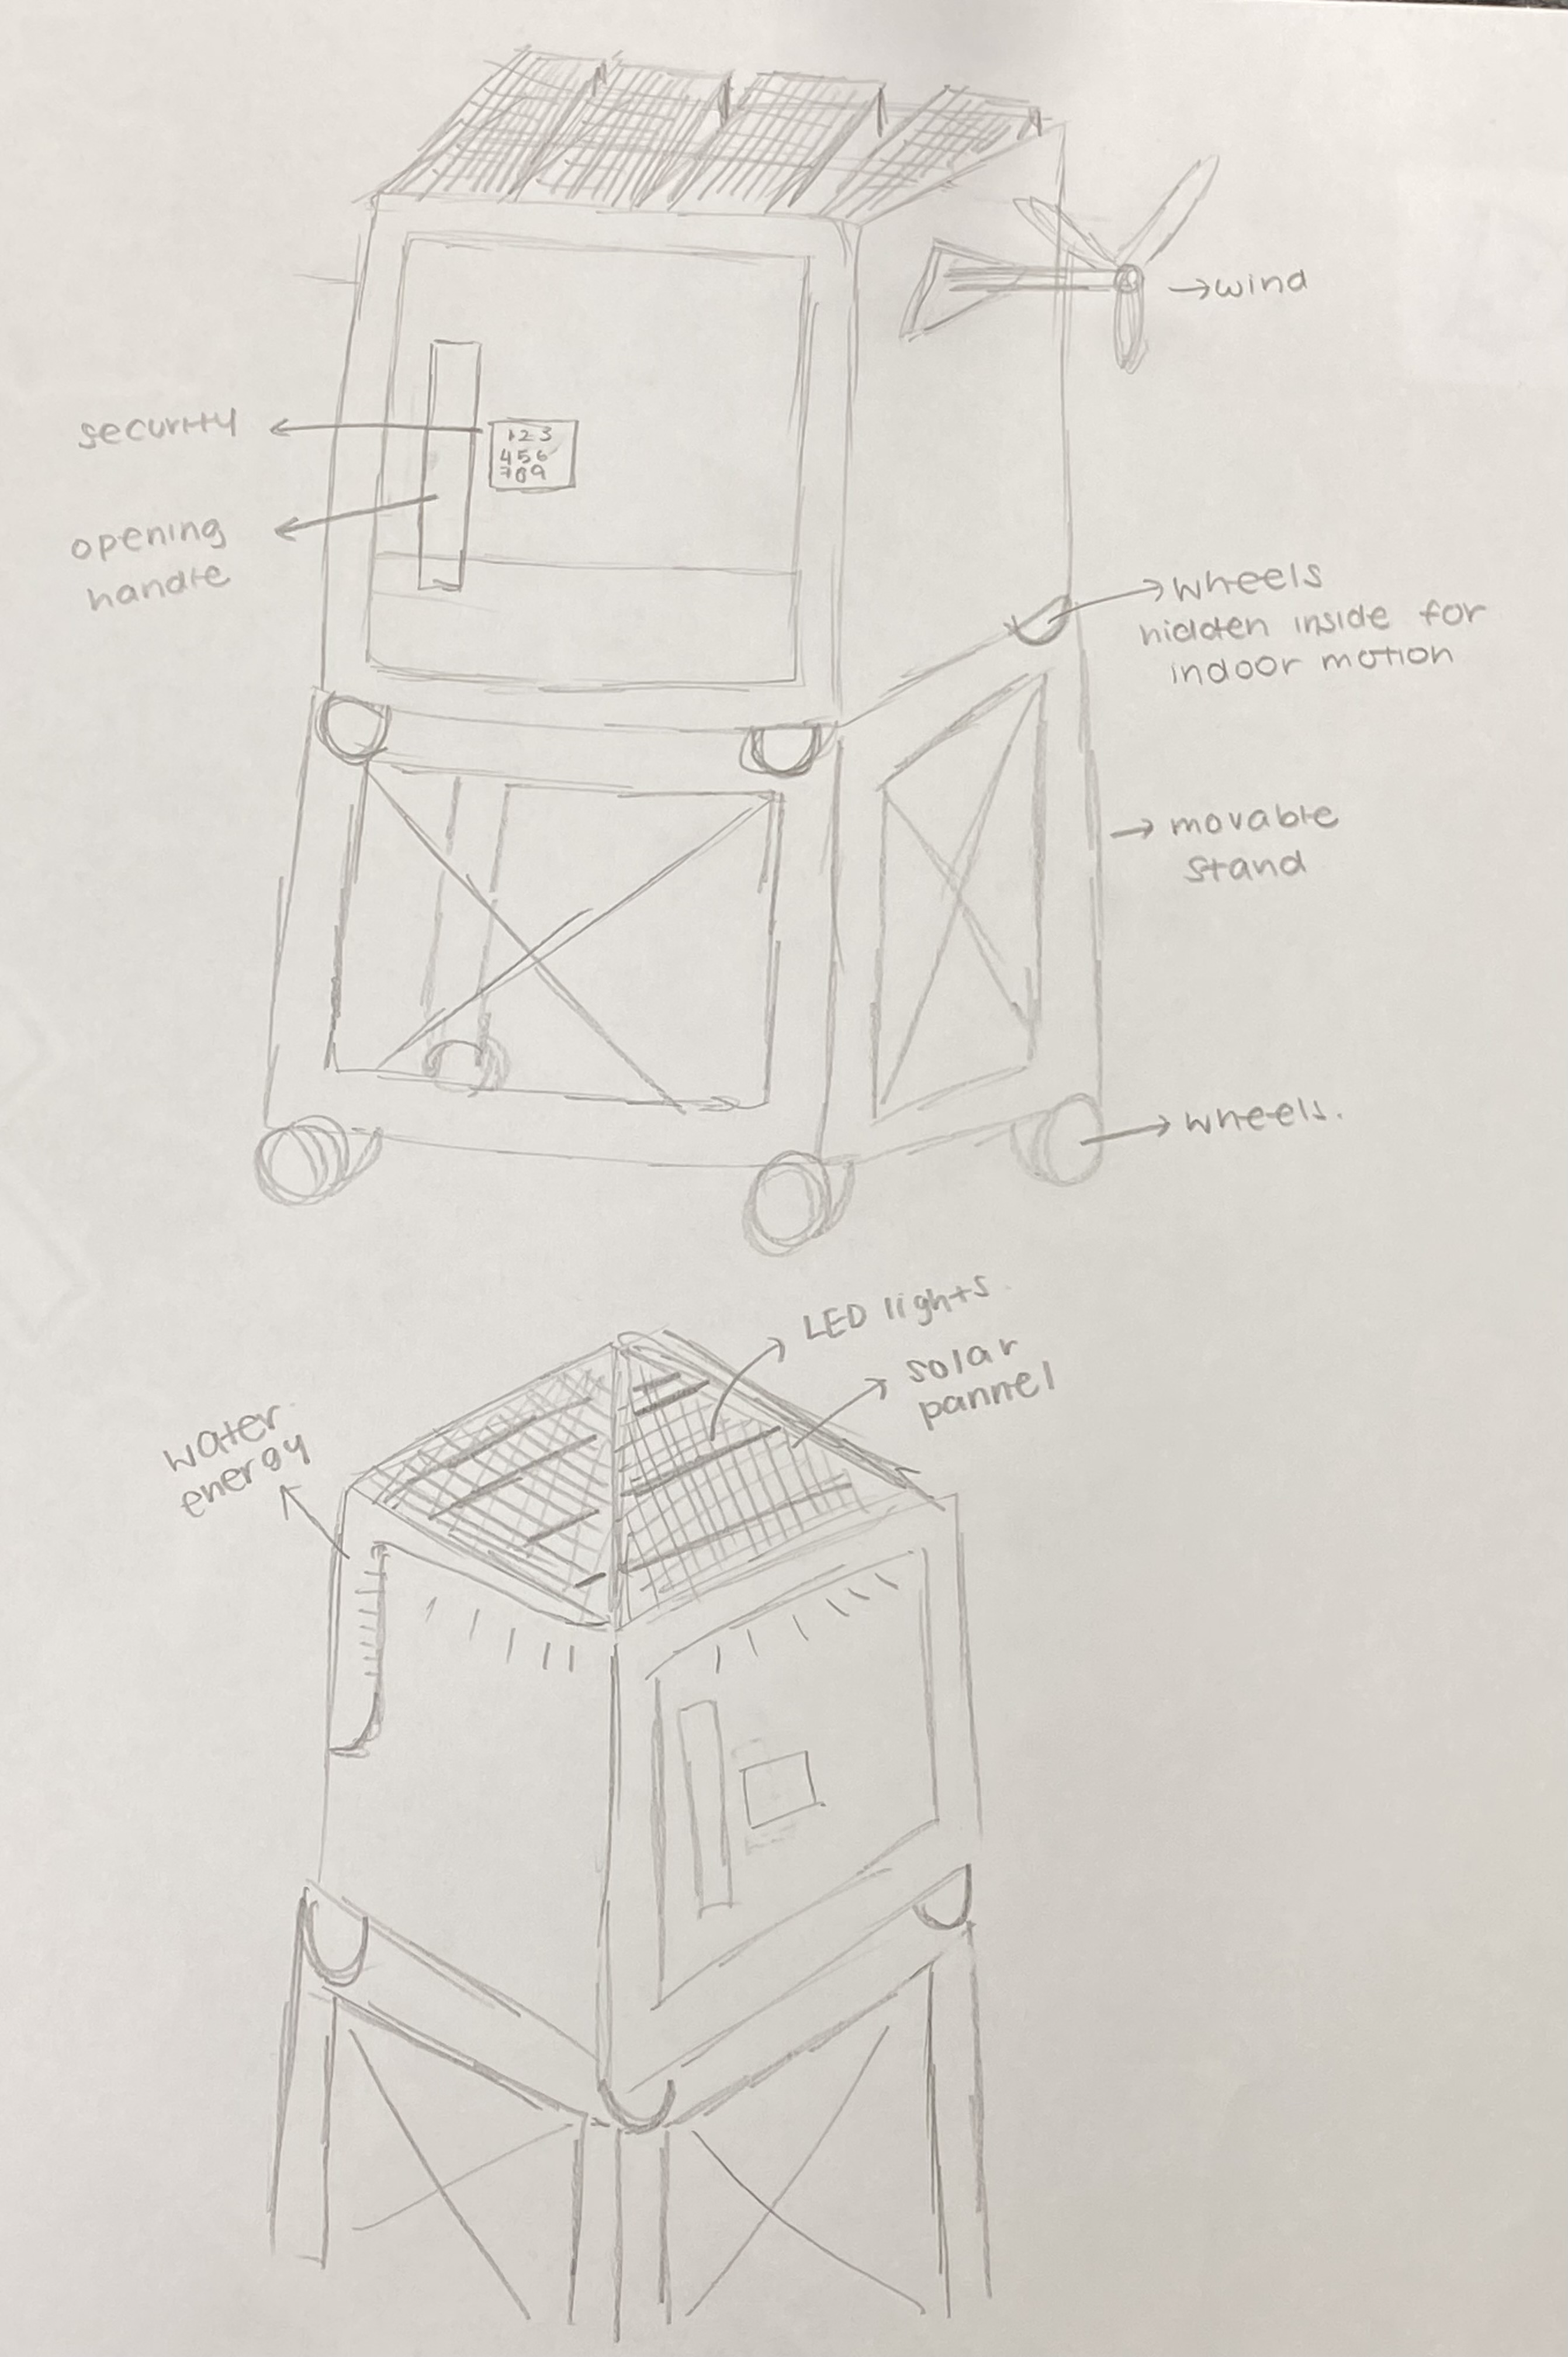 →wind
security
123
456
789
opening
handle
wheels
hidden inside for
indoor motion
movable
stand
wheels.
LED lights.
solar
pannel
water
energy